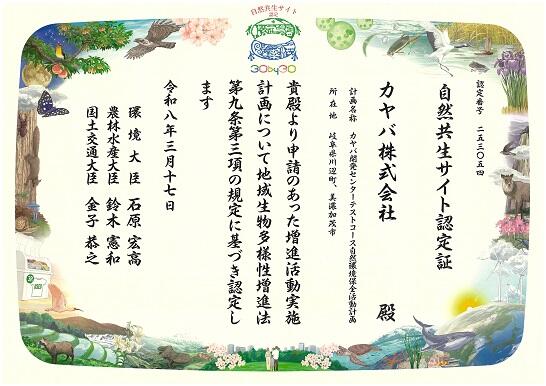 自然共生サイト
認定
30by30
認定番号 二五三〇五四
自然共生サイト認定証
カヤバ株式会社 殿
計画名称 カヤバ開発センターテストコース自然環境保全活動計画
所在地 岐阜県川辺町、美濃加茂市
貴殿より申請のあった増進活動実施
計画について地域生物多様性増進法
第九条第三項の規定に基づき認定し
ます
令和八年三月十七日
環境大臣 石原宏高
農林水産大臣 鈴木憲和
国土交通大臣 金子恭之